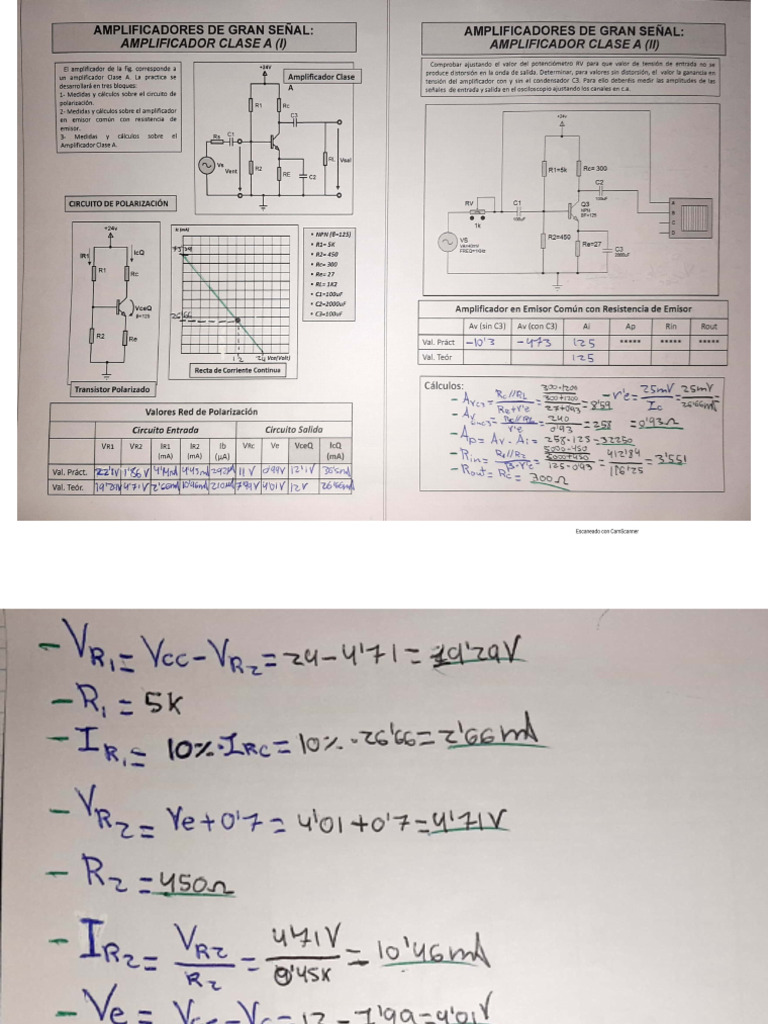 AMPLIFICADORES DE GRAN SEÑAL:
AMPLIFICADOR CLASE A (I)
El amplificador de la fig. corresponde a
un amplificador Clase A. La practice se
desarrollará en tres bloques:
1- Medidas y cálculos sobre el circuito de
polarización.
2- Medidas y cálculos sobre el amplificador
en emisor común con resistencia de
emisor.
3- Medidas y cálculos sobre el
Amplificador Clase A.
Amplificador Clase
A
+24v
R1
Rc
C3
Rs
C1
Ve
Vent
R2
RE
C2
RL
Vsal
CIRCUITO DE POLARIZACIÓN
+24v
IR1
IcQ
R1
Rc
VceQ
B=125
R2
Re
Transistor Polarizado
Ic (mA)
26'66
12
24
Vce(Volt)
Recta de Corriente Continua
• NPN (β=125)
• R1= 5K
• R2= 450
• Rc= 300
• Re= 27
• RL= 1K2
• C1=100uf
• C2=2000uf
• C3=100uf
Valores Red de Polarización
Circuito Entrada Circuito Salida
VR1 VR2 IR1 (mA) IR2 (mA) Ib (μA) VRc Ve VceQ IcQ (mA)
Val. Práct. 22'1V 1'86V 4'4mA 4'43mA 292μA 11V 0'99V 12'1V 36'5mA
Val. Teór. 19'29V 4'71V 2'66mA 10'46mA 210μA 7'99V 4'01V 12V 26'66mA
AMPLIFICADORES DE GRAN SEÑAL:
AMPLIFICADOR CLASE A (II)
Comprobar ajustando el valor del potenciómetro RV para que valor de tensión de entrada no se
produce distorsión en la onda de salida. Determinar, para valores sin distorsión, el valor la ganancia en
tensión del amplificador con y sin el condensador C3. Para ello deberéis medir las amplitudes de las
señales de entrada y salida en el osciloscopio ajustando los canales en c.a.
+24v
R1=5k
Rc= 300
C2
100uF
RV
1k
C1
100uF
Q3
NPN
BF=125
VS
VA=40mV
FREQ=1KHz
R2=450
Re=27
C3
2000uF
A
B
C
D
Amplificador en Emisor Común con Resistencia de Emisor
Av (sin C3) Av (con C3) Ai Ap Rin Rout
Val. Práct -10'3 -473 125 ***** ***** *****
Val. Teór 125
Cálculos:
- Avc3 = Rc//RL / Re+r'e = 300·1200 / 300+1200 / 27+0'93 = 8'59
- r'e = 25mV / Ic = 25mV / 26'66mA = 0'93Ω
- Av = Rc//RL / r'e = 240 / 0'93 = 258
- Ap = Av · Ai = 258·125 = 32250
- Rin = R1//R2 / β·r'e = 5000·450 / 5000+450 / 125·0'93 = 412'84 / 116'25 = 3'551
- Rout = Rc = 300Ω
Escaneado con CamScanner
- VR1 = Vcc - VR2 = 24 - 4'71 = 19'29V
- R1 = 5K
- IR1 = 10% · IRC = 10% · 26'66 = 2'66mA
- VR2 = Ve + 0'7 = 4'01 + 0'7 = 4'71V
- R2 = 450Ω
- IR2 = VR2 / R2 = 4'71V / 0'45K = 10'46mA
- Ve = 12 - 7'99 = 4'01V